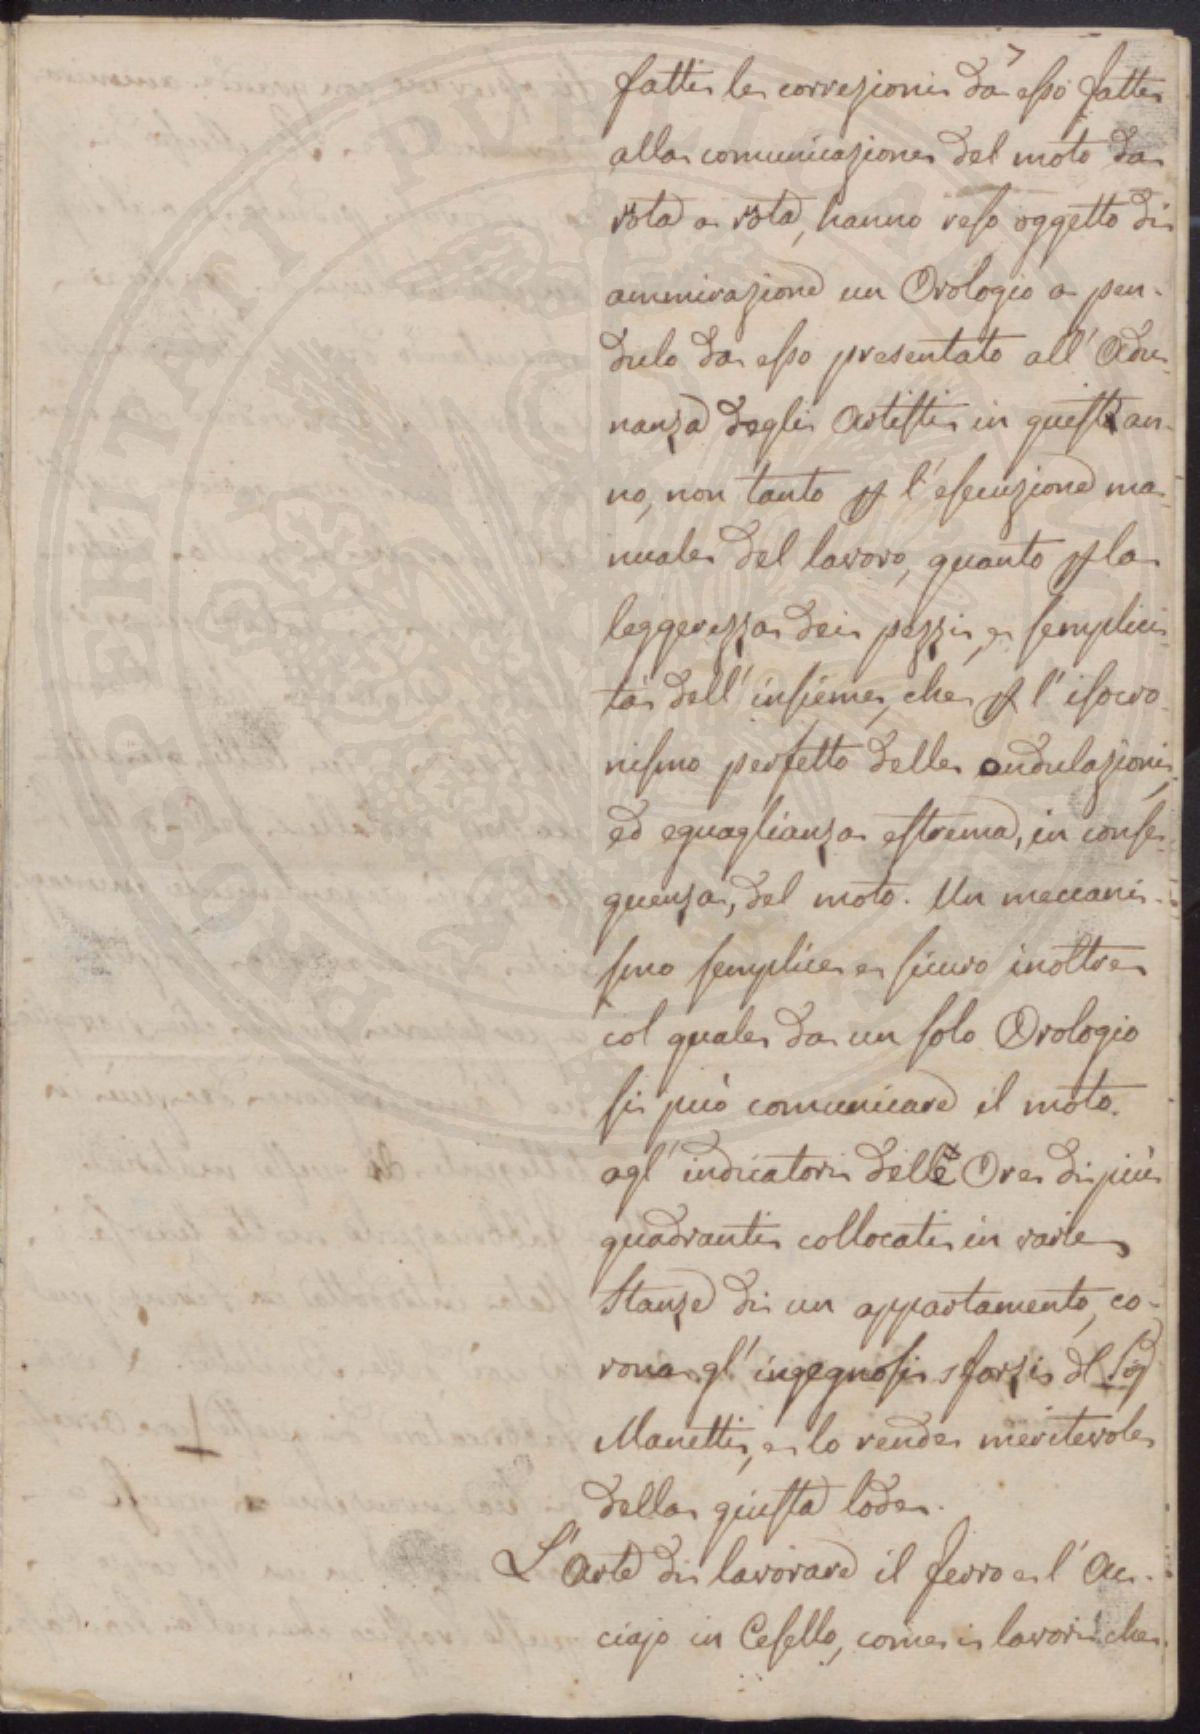 fatti le correzioni da esso fatte
alla comunicazione del moto da
rota a rota, hanno reso oggetto di
ammirazione un Orologio a pen-
dulo da esso presentato all' Adu-
nanza degli Artisti in quest' an-
no, non tanto p l' esecuzione ma-
nuale del lavoro, quanto p la
leggerezza dei pezzi, e semplici-
tà dell' insieme, che p l' isocro-
nismo perfetto delle ondulazioni,
ed eguaglianza estrema, in conse-
guenza, del moto. Un meccani-
smo semplice e sicuro inoltre
col quale da un solo Orologio
si può comunicare il moto
agl' indicatori delle Ore di più
quadranti collocati in varie
Stanze di un appartamento, co-
rona gl' ingegnosi sforzi dl Sig
Manetti, e lo rende meritevole
della giusta lode.
L' Arte di lavorare il ferro e l' Ac-
ciajo in Cesello, come i lavori che
PROSPERITATI PUBLICAE